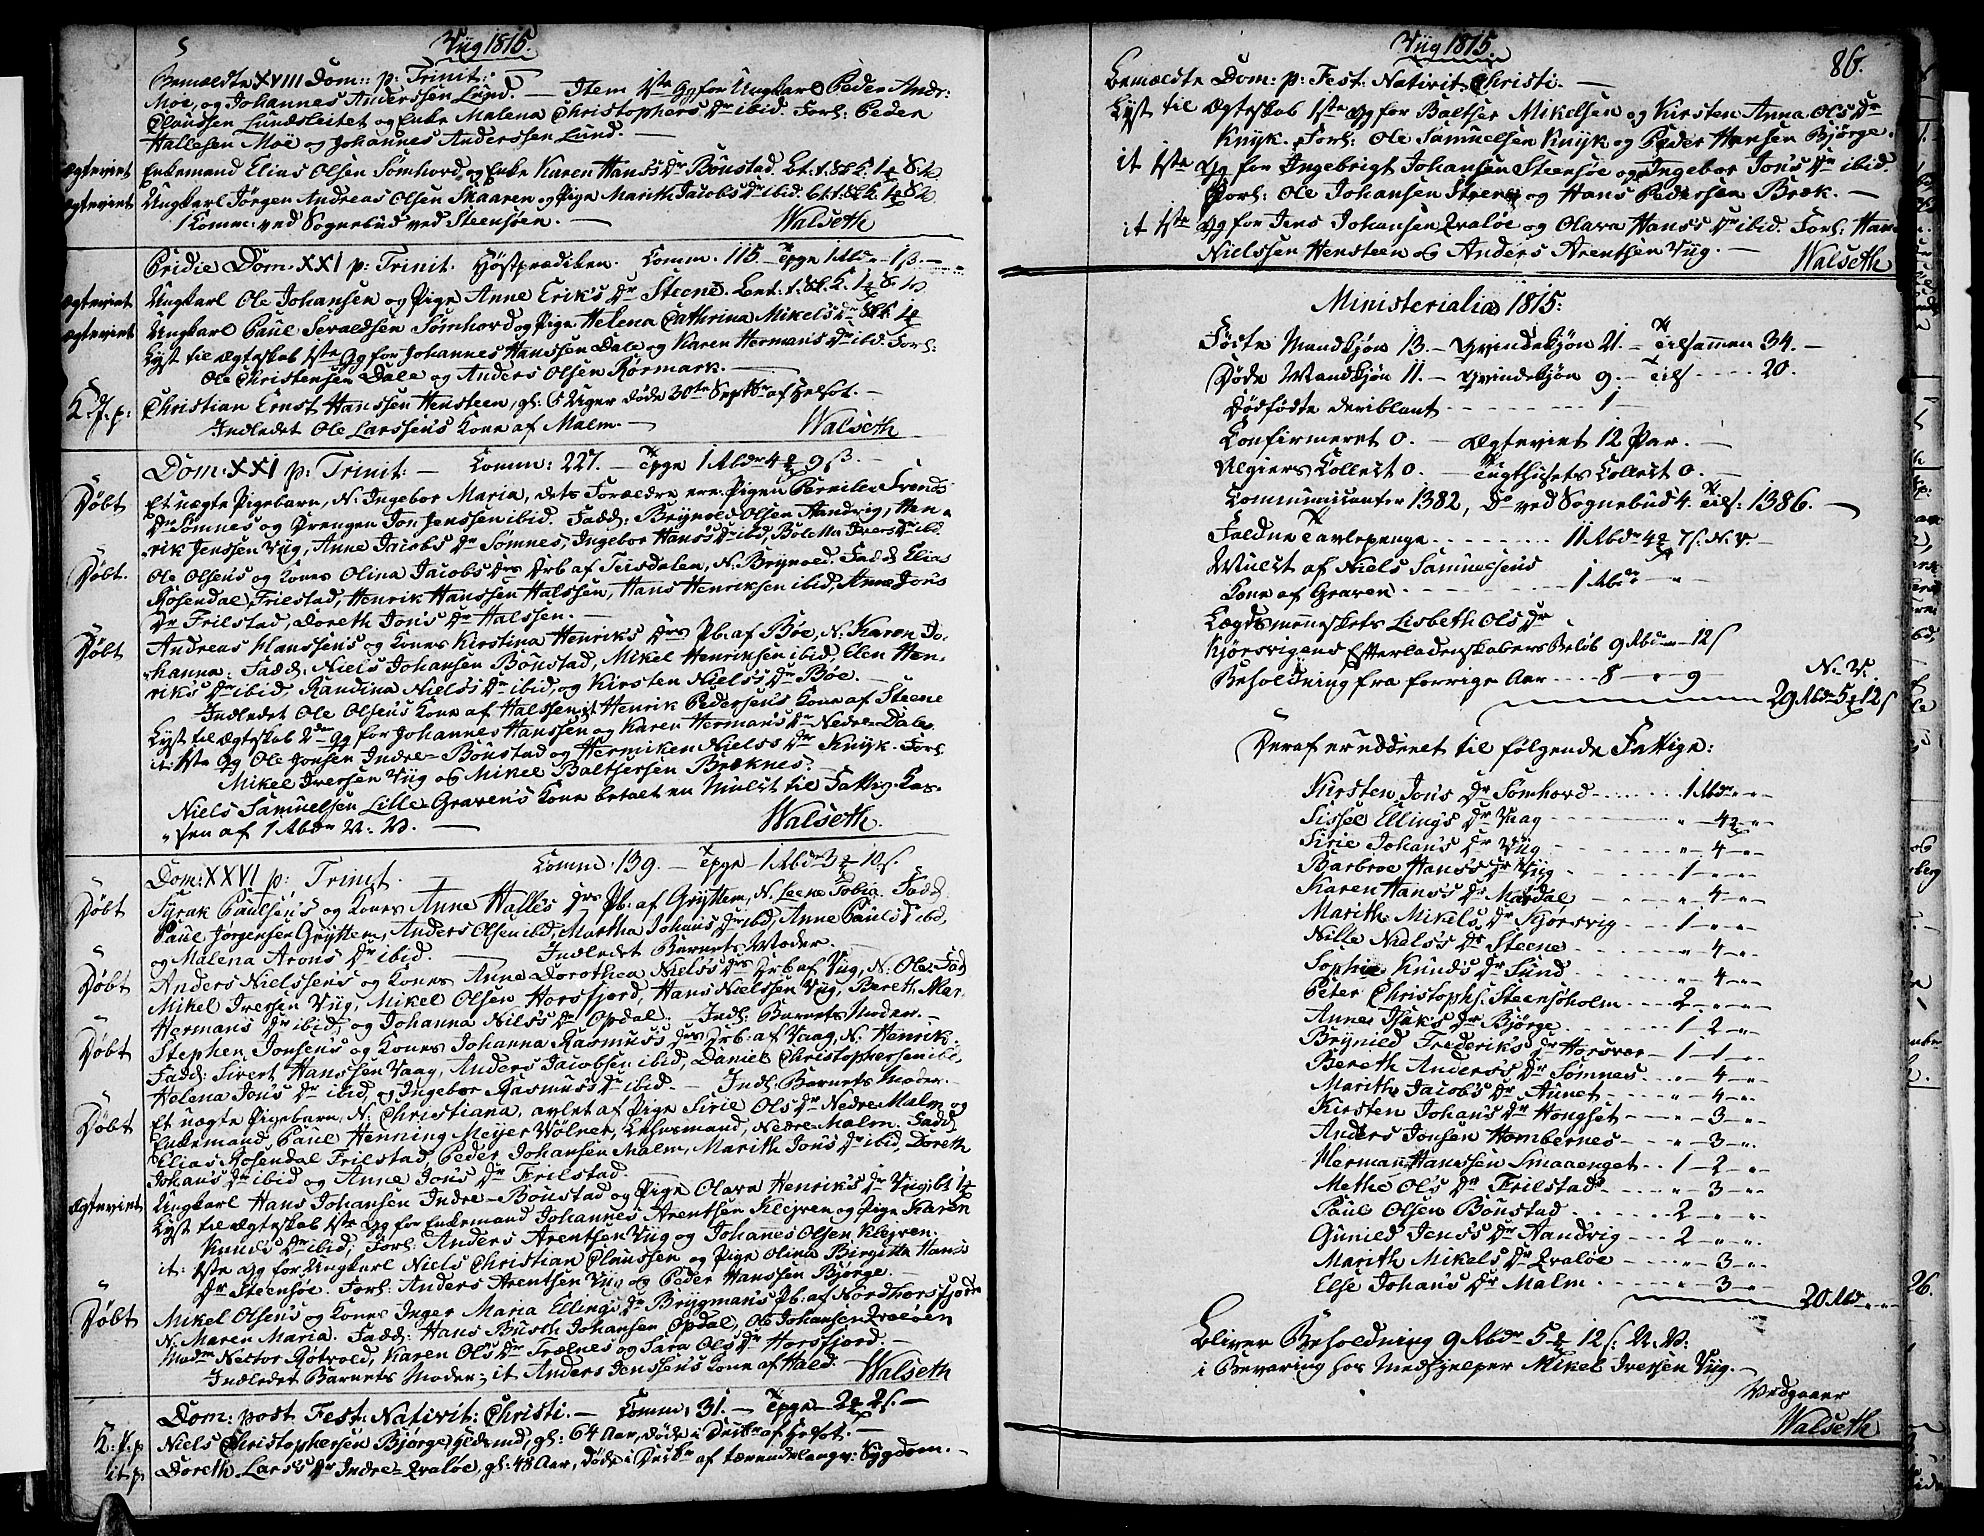 Vüg 1815.
Bemældte XVIII Dom: p: Trinit:
Moe, og Johannes Anderssen Lund. — Item 1ste Gg for Ungkarl Peder Andr:
Claussen Lundsleitet og Enke Malena Christophers Dr ibid. Forl: Peder
Hallesen Moe og Johannes Anderssen Lund. —
Ægteviet Enkemand Elias Olsen Sømhord, og Enke Karen Hans's Dr Bönstad.
Ægteviet Ungkarl Jørgen Andreas Olsen Skaaren og Pige Marith Jacobs Dr ibid.
1 Komm: ved Sognebud ved Steensøen. — Walseth
Pridie Dom. XXI p: Trinit. Høstprædiken. Comm. 115 — Tpge 1 Rbdr " 1 ß. —
Ægteviet Ungkarl Ole Johansen og Pige Anne Erik's Dr Steene.
Ægteviet Ungkarl Paul Sevaldsen Sømhord og Pige Helena Cathrina Mikels Dr
Lyst til Ægteskab 1ste Gg for Johannes Hanssen Dale og Karen Hermans Dr ibid. Forl:
Ole Christensen Dale og Anders Olsen Rørmark. —
Christian Ernst Hanssen Hensteen, gl: 5 Uger døde 30te Septbr af Helsot. —
Indledet Ole Larssen's Kone af Malm. — Walseth
Dom: XXI p: Trinit: — Comm: 227. — Tpge 1 Rbdr 4 9 ß —
Døbt Et uægte Pigebarn, N. Ingebor Maria, dets Forældre ere: Pigen Pernille Svends
Dr Sømnes og Drengen Jon Jenssen ibid. Fadd: Brynold Olsen Aandvig, Hen-
rik Jenssen Vüg, Anne Jacobs Dr Sømnes, Ingebor Hans's Dr ibid, Boletta Ivers Dr ibid.
Døbt. Ole Olsen's og Kones Olina Jacobs Drs Drb af Teisdalen, N. Brynold. Fadd. Elias
Rosendal Frilstad, Henrik Hanssen Halssen, Hans Henriksen ibid, Anne Jons
Dr Frilstad, Doreth Jon's Dr Halssen. —
Døbt Andreas Hanssen's og Kones Kirstina Henriks Drs Pb: af Bøe, N. Karen Jo-
hanna: Fadd: Niels Johansen Bönstad, Mikel Henriksen ibid, Elen Hen-
riks Dr ibid, Randina Niels's Dr ibid, og Kirsten Niels's Dr Bøe. —
Indledet Ole Olsen's Kone af Halssen, it Henrik Pedersen's Kone af Steene
Lyst til Ægteskab 2den Gg for Johannes Hanssen og Karen Hermans Dr Nedre Dale.
it: 1ste Gg Ole Jonsen Indre-Bönstad og Hermiken Niels's Dr Knyk. Forl.
Mikel Iversen Vüg og Mikel Baltsersen Bræknes. —
Niels Samuelsen Lille-Graven's Kone betalt en Mulct til Fattig-Cas-
sen af 1 Rbdr N. V. — Walseth.
Dom: XXVI p: Trinit. Comm. 139. — Tpge 1 Rbdr 3 10 ß.
Døbt Syrak Paulsen's og Kones Anne Halles Drs Pb. af Gryttem, N. Leene Tobia. Fadd
Paul Jørgensen Gryttem, Anders Olsen ibid, Martha Johans Dr ibid, Anne Pauls Dr ibid,
og Malena Arons Dr ibid. — Indledet Barnets Moder. —
Døbt Anders Nielssen's og Kones Anne Dorothea Niels's Drs Drb af Vüg, N: Ole. Fad
Mikel Iversen Vüg, Mikel Olsen Horsfjord, Hans Nielssen Vüg, Bereth Mar.
Hermans Dr ibid, og Johanna Nils's Dr Opdal. Indl: Barnets Moder. —
Døbt Stephen Jonsen's og Kones Johanna Rasmus's Drs Drb: af Vaag, N. Henrik.
Fadd: Sivert Hanssen Vaag, Anders Jacobsen ibid, Daniel Christophersen ibid,
Helena Jon's Dr ibid, og Ingebor Rasmus's Dr ibid. — Indl: Barnets Moder. —
Døbt Et uægte Pigebarn, N. Christiana, avlet af Pige Sirie Ols Dr Nedre Malm og
Enkemand, Paul Henning Meyer Wolner, Lehnsmand, Nedre Malm. Fadd
Elias Rosendal Frilstad, Peder Johansen Malm, Marith Jon's Dr ibid, Doreth
Johans Dr ibid og Anne Jon's Dr Frilstad.
Ægteviet Ungkarl Hans Johansen Indre-Bönstad og Pige Olava Henrik's Dr Vüg
Lyst til Ægteskab 1ste Gg for Enkemand Johannes Arentsen Klejven og Pige Karen
Knuds Dr ibid, Forl: Anders Arentsen Vüg og Johannes Olsen Klejven.
it: 1ste Gg for Ungkarl Niels Christian Claussen og Pige Olina Birgitta Hans's
Dr Steensøe. Forl: Anders Arentsen Vüg og Peder Hanssen Bjørge.
Døbt Mikel Olsen's og Kones Inger Maria Ellings Dr Brygman's Pb: af Nordhorsfjord
N: Maren Maria. Fadd: Hans Busch Johansen Opdal, Ole Johansen Qvaløen
Madm Nector Røtvold, Karen Ols Dr Trælnes og Sara Ols Dr Horsfjord. —
Indledet Barnets Moder, it Anders Jenssen's Kone af Hald. — Walseth
Dom: post. Fest. Nativit: Christi. — Comm. 31. — Tpge 2 2 ß. —
Niels Christophersen Bjørge, gl: 64 Aar, døde i Decbr af Helsot. —
Doreth Lars's Dr Indre-Qvaløe, gl: 48 Aar, døde i Decbr af tærende langv: Sygdom. —
Vüg 1815.
86.
Bemældte Dom: p: Fest. Nativit. Christi. —
Lyst til Ægteskab 1ste Gg for Baltser Mikelsen og Kirsten Anna Ols Dr
Knyk. Forl: Ole Samuelsen Knyk og Peder Hansen Bjørge.
it 1ste Gg for Ingebrigt Johansen Steensøe og Ingebor Jon's Dr ibid.
Forl: Ole Johansen Steensøe og Hans Pedersen Bræk. —
it 1ste Gg for Jens Johansen Qvaløe og Olava Hans's Dr ibid. Forl: Hans
Nielssen Hensteen og Anders Arentsen Vüg. — Walseth
Ministerialia 1815:
Føste Mandkjøn 13. — Qvindekjøn 21. — Tilsammen 34. —
Døde Mandkjøn 11. — Qvindekjøn 9. — Tils — 20.
Dødfødte deriblant — 1 —
Confirmeret 0. — Ægteviet 12 Par. —
Algiers Collect 0. — Tugthusets Collect 0. —
Communicanter 1382, Do ved Sognebud 4. Tils: 1386. —
Faldne Tavlepenge — 11 Rbdr 4 7 ß. N. V. —
Mulct af Niels Samuelsens
Kone af Graven — 1 Rbdr " "
Lægdsmenneskets Lisbeth Ols Dr
Kjørsvigens Efterladenskabers Beløb 9 Rbdr — 12 ß
Beholdning fra forrige Aar — 8 " 9 — N. V.
29 Rbdr 5 12 ß
Deraf er uddeelt til følgende Fattige:
Kirsten Jons Dr Sømhord — 1 Rbdr " "
Sissel Elling's Dr Vaag — " 4 "
Sirie Johan's Dr Vüg — " 4 "
Barbroe Hans's Dr Vüg — 1 " "
Karen Hans's Dr Mardal — " 4 "
Marith Mikels Dr Kjørsvig — 1 " "
Nille Niels's Dr Steene — " 4 "
Sophie Knud's Dr Lund — " 4 "
Peter Christophs: Steensøholm — 2 " "
Anne Isak's Dr Bjørge — 1 2 "
Brynild Frederik's Dr Horsvær — 1 1 "
Bereth Anders's Dr Sømnes — " 4 "
Marith Jacob's Dr Aunet — " 4 "
Kirsten Johan's Dr Hongset — " 3 "
Anders Jonsen Hombornes — " 3 "
Herman Hanssen Smaaenget — 1 2 "
Methe Ol's Dr Frilstad — " 3 "
Paul Olsen Bönstad — 2 " "
Gunild Jens's Dr Aandvig — 2 " "
Marith Mikels Dr Qvaløe — " 3 "
Else Johan's Dr Malm — " 3 "
20 Rbdr " "
Bliver Beholdning 9 Rbdr 5 12 ß: N. V:
i Bevaring hos Medhjelper Mikel Iversen Vüg. —
Vedgaaer
Walseth